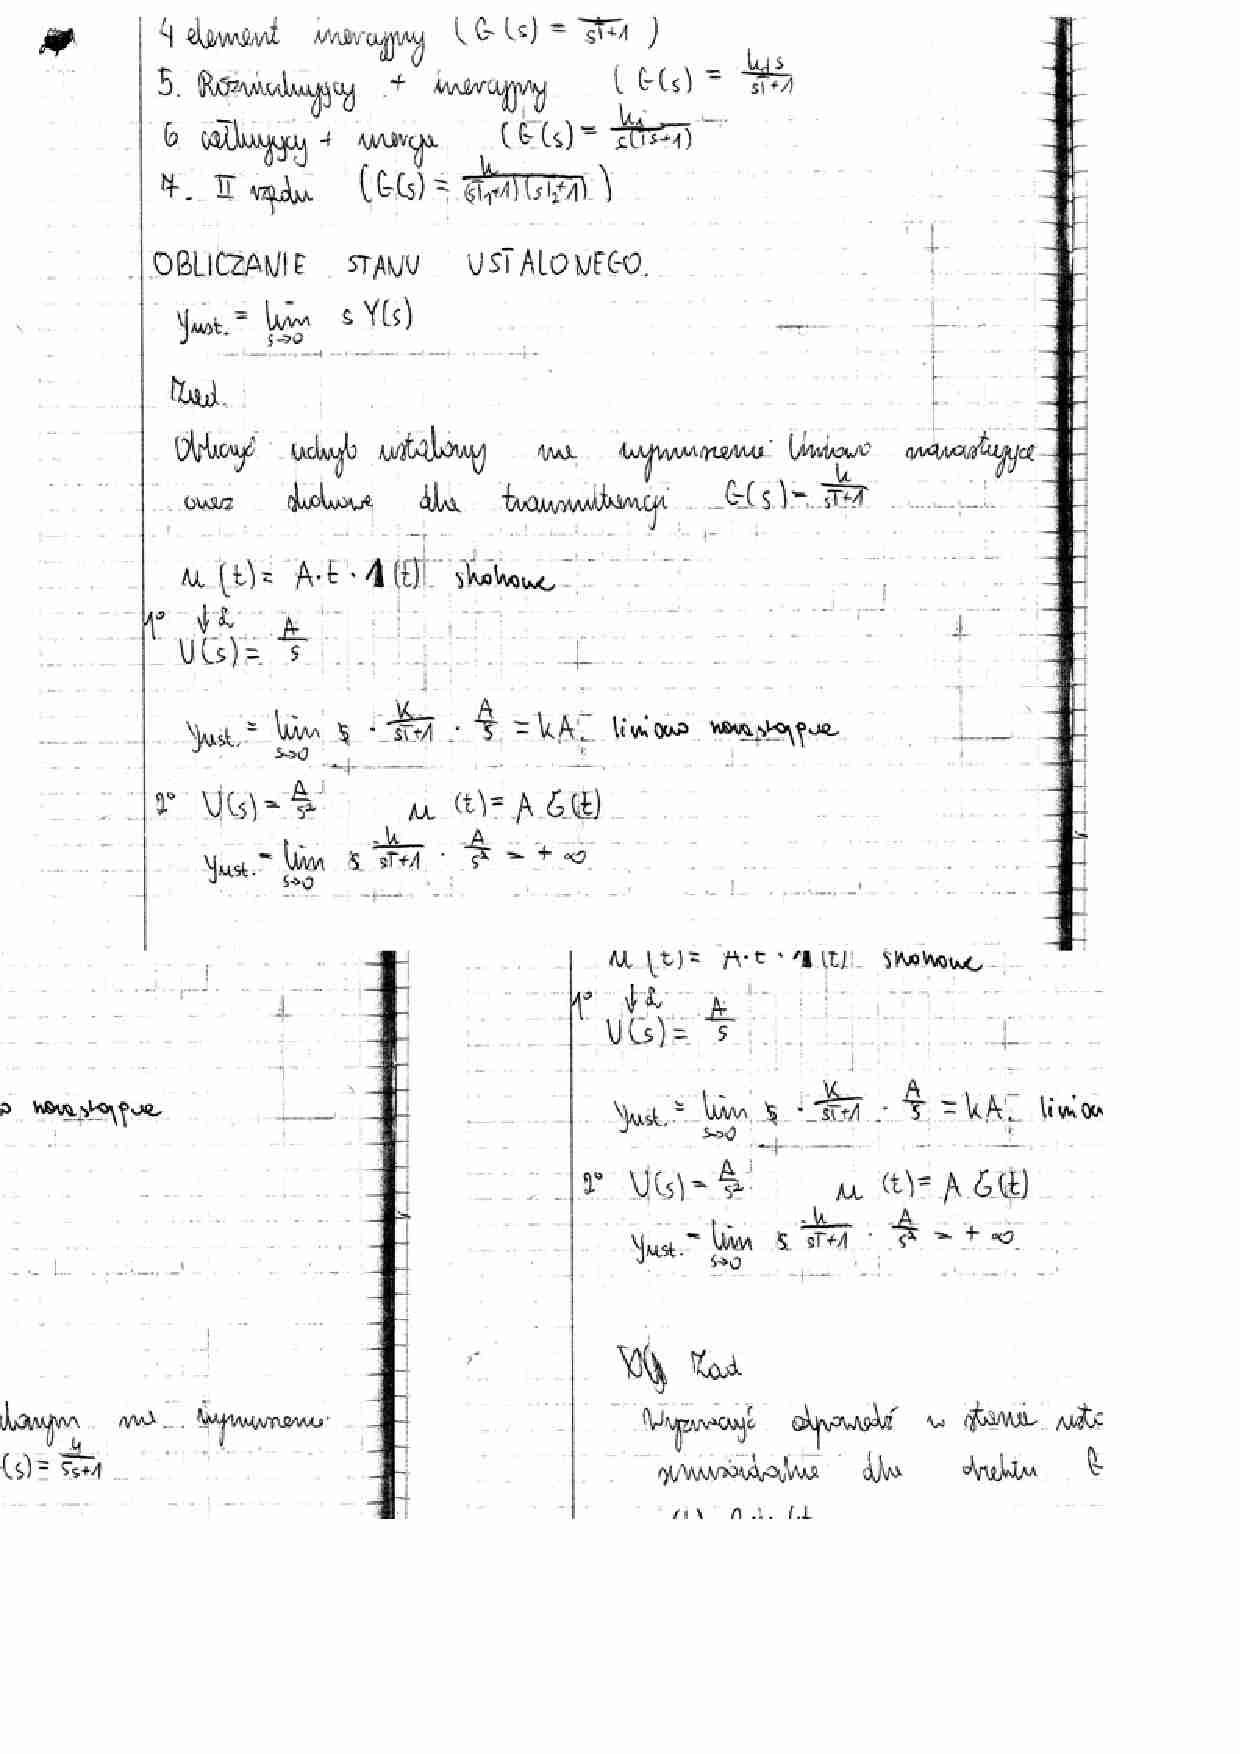 4 element inercyjny (G(s) = 1/(sT+1))
5. Różniczkujący + inercyjny (G(s) = kds/(sT+1)
6 całkujący + inercja (G(s) = ki/(s(Ts+1))
7. II rzędu (G(s) = k/((sT1+1)(sT2+1)))
OBLICZANIE STANU USTALONEGO.
yust. = lim s→0 s Y(s)
Zad.
Obliczyć uchyb ustalony na wymuszenie liniowo narastające
oraz skokowe dla transmitancji G(s) = k/(sT+1)
u (t) = A·t·1(t) skokowe
1° ↓ L
U(s) = A/s
yust. = lim s→0 s · K/(sT+1) · A/s = kA liniowo narastające
2° U(s) = A/s² u (t) = A δ(t)
yust. = lim s→0 s k/(sT+1) · A/s² = + ∞
u (t) = A·t·1(t) skokowe
1° ↓ L
U(s) = A/s
o narastające
yust. = lim s→0 s · K/(sT+1) · A/s = kA liniow
2° U(s) = A/s² u (t) = A δ(t)
yust. = lim s→0 s k/(sT+1) · A/s² = + ∞
Zad
na wymuszenie
Wyznaczyć odpowiedź w stanie usta
(s) = 4/(5s+1)
sinusoidalne dla obiektu G